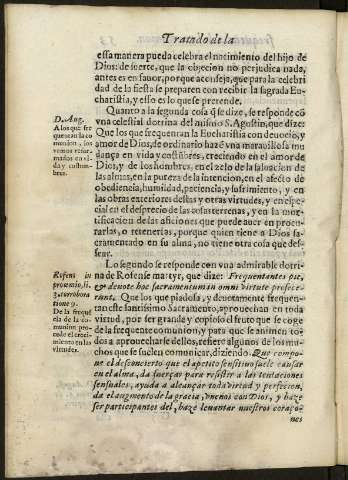 Tratado de la
essa manera pueda celebra el nacimiento del hijo de
Dios: de suerte, que la objecion no perjudica nada,
antes es en fauor, porque aconseja, que para la celebri
dad de la fiesta se preparen con recibir la sagrada Eu-
charistia, y esso es lo que se pretende.
Quanto a la segunda cosa q̃ se dize, se responde cõ
vna celestial dotrina del mismo S. Agustin, que dize:
Que los que frequentan la Eucharistia con deuociõ, y
amor de Dios, de ordinario hazẽ vna marauillosa mu
dança en vida y costũbres, creciendo en el amor de
Dios, y de los hombres, en el zelo de la saluacion de
las almas, en la pureza de la intencion, en el afecto de
obediencia, humildad, paciencia, y sufrimiento, y en
las obras exteriores destas y otras virtudes, y en espe-
cial en el desprecio de las cosas terrenas, y en la mor-
tificacion de las aficiones que puede auer en procu-
rarlas, o retenerlas, porque quien tiene a Dios sa-
cramentado en su alma, no tiene otra cosa que des-
sear.
D. Aug.
A los que fre
quentan la co
munion, los
vemos refor-
mados en vi-
da y costum-
bres.
Lo segundo se responde con vna admirable dotri-
na de Rofense martyr, que dize: Frequentantes piè,
& deuotè hoc sacramentum in omni virtute profece-
runt. Que los que piadosa, y deuotamente frequen-
tan este santissimo Sacramento, aprouechan en toda
virtud, y por ser grande y copioso el fruto que se coge
de la frequente comunion, y para que se animen to-
dos a aprouecharse dellos, refiere algunos de los mu-
chos que se suelen comunicar, diziendo. Que compo-
ne el desconcierto que el apetito sensitiuo suele causar
en el alma, da fuerças para resistir a las tentaciones
sensuales, ayuda a alcançar toda virtud y perfecion,
da el augmento de la gracia, vnenos con Dios, y haze
ser participantes del, haze leuantar nuestros coraço-
nes
Rofens in
proœmio, li.
3. corrobora
tione 9.
De la frequẽ
cia de la co-
munion pro-
cede el creci-
miento en las
virtudes.